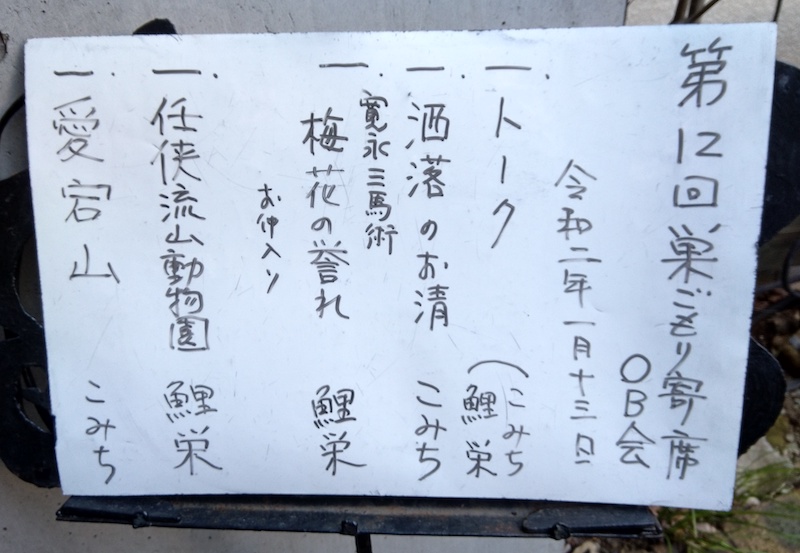 第12回巣ごもり寄席
OB会
令和二年一月十三日
一.トーク(こみち
鯉栄
一.洒落のお清 こみち
寛永三馬術
一.梅花の誉れ 鯉栄
お仲入り
一.任侠流山動物園 鯉栄
一.愛宕山 こみち